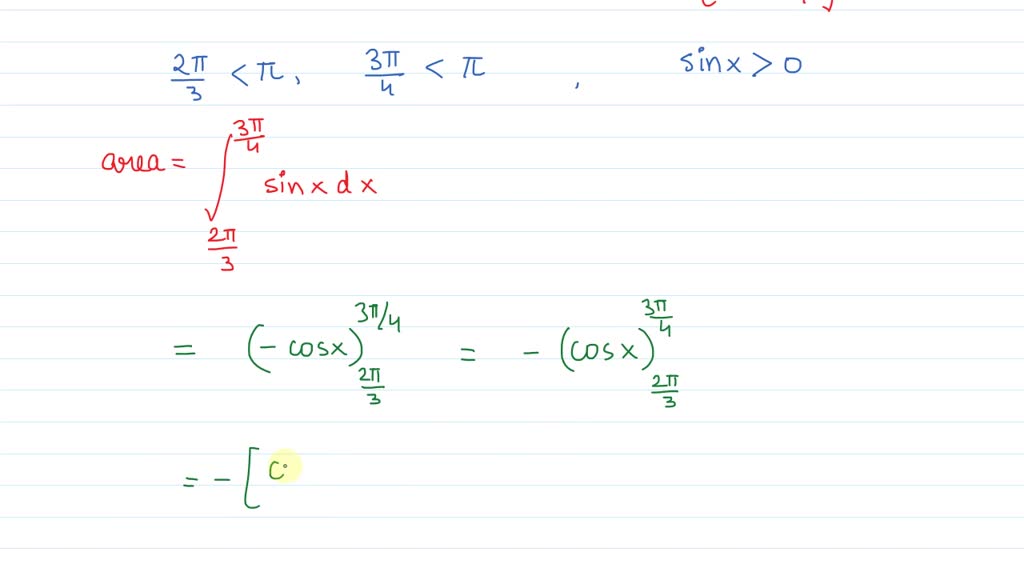 2π/3 < π, 3π/4 < π , sinx > 0
area = ∫_{2π/3}^{3π/4} sinx dx
= (-cosx)_{2π/3}^{3π/4} = -(cosx)_{2π/3}^{3π/4}
= -[ c